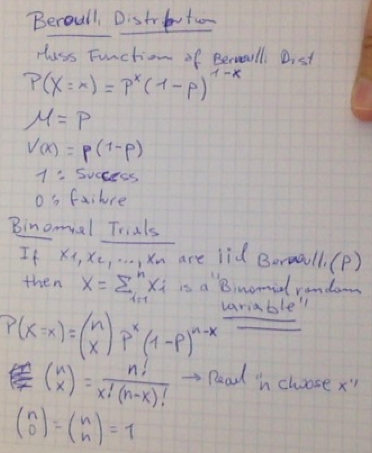 Beroulli Distribution
Mass Function of Bernoulli Dist
P(X=x) = p^x (1-p)^{1-x}
μ = p
V(x) = p(1-p)
1 : Success
0 : failure
Binomial Trials
If x1, x2, ..., xn are iid Bernoulli(p)
then X = Σ_{i=1}^{n} Xi is a "Binomial random
variable"
P(X=x) = (n x) p^x (1-p)^{n-x}
(n x) = n! / x!(n-x)! → Read "n choose x"
(n 0) = (n n) = 1